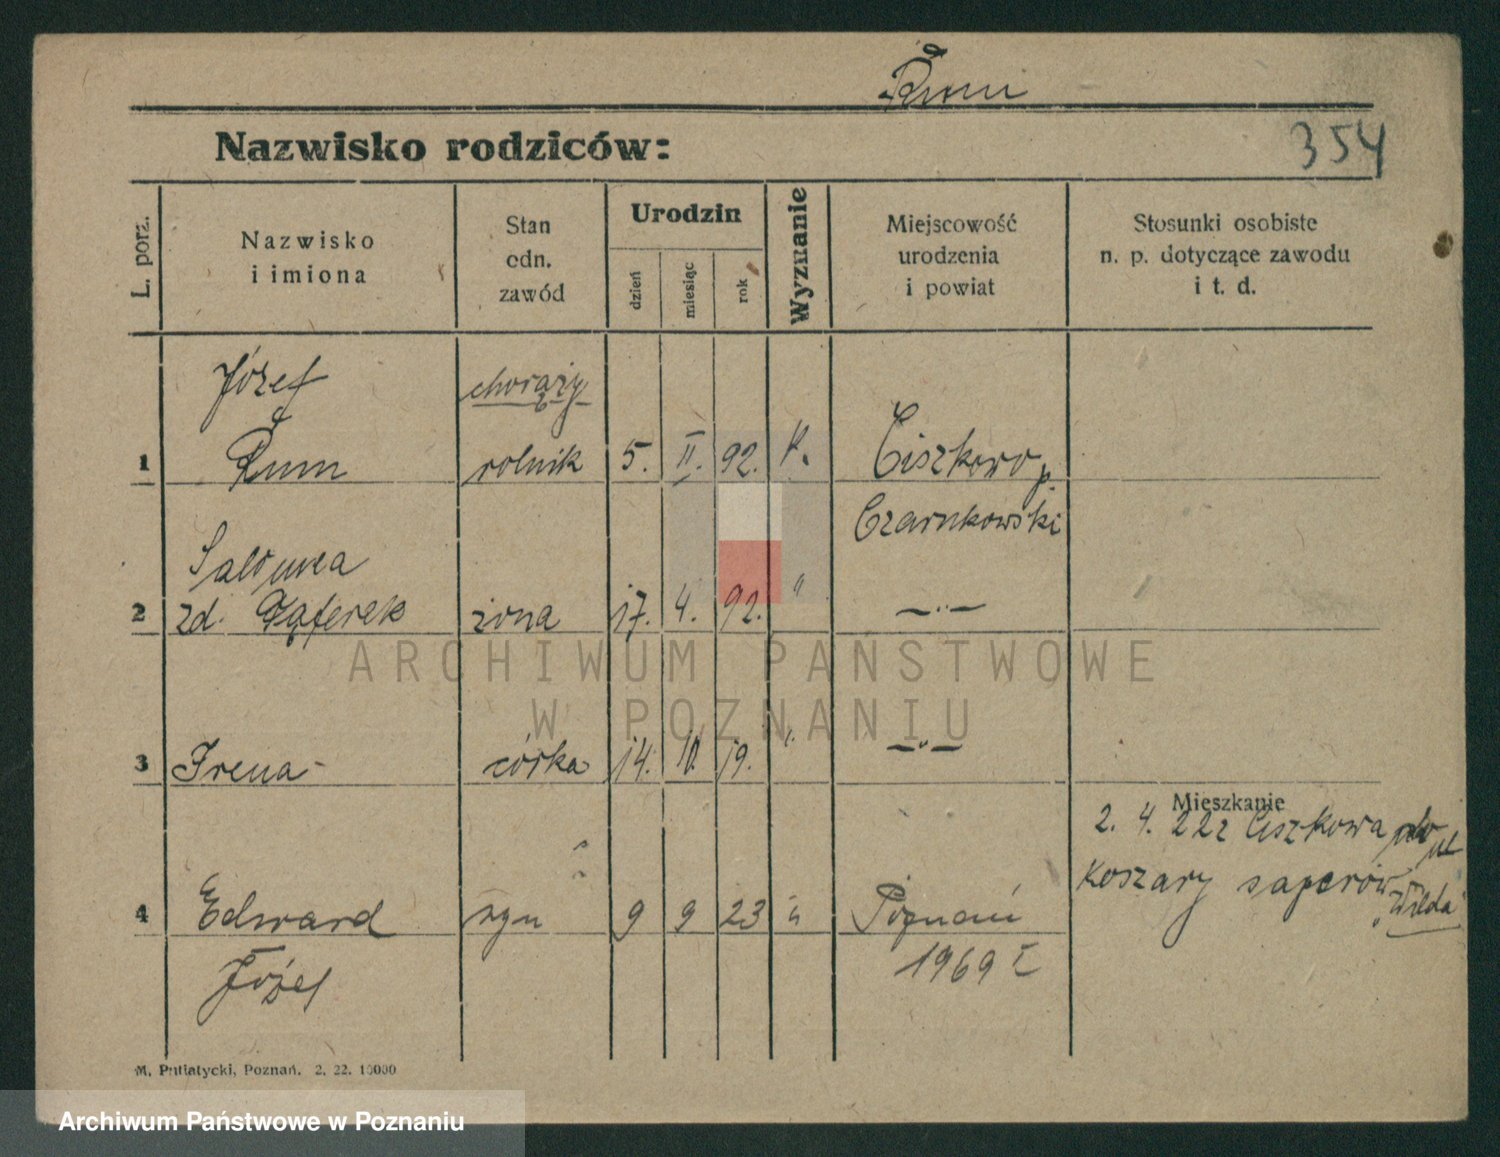 Rum
Nazwisko rodziców:
354
L. porz.
Nazwisko
i imiona
Stan
odn.
zawód
Urodzin
dzień
miesiąc
rok
Wyznanie
Miejscowość
urodzenia
i powiat
Stosunki osobiste
n. p. dotyczące zawodu
i t. d.
Józef chorąży
1 Rum rolnik 5. II. 92. k. Ciszkowo p.
Czarnkowski
Salomea
2 zd. żona 17. 4. 92. " —"—
3 Irena córka 14. 10. 19. " —"—
Mieszkanie
2. 4. 22 z Ciszkowa
koszary saperów
"Wilda"
4 Edward syn 9 9 23 " Poznań
Józef 1969 I
M. Putiatycki, Poznań. 2. 22. 10000
ARCHIWUM PAŃSTWOWE
W POZNANIU
Archiwum Państwowe w Poznaniu